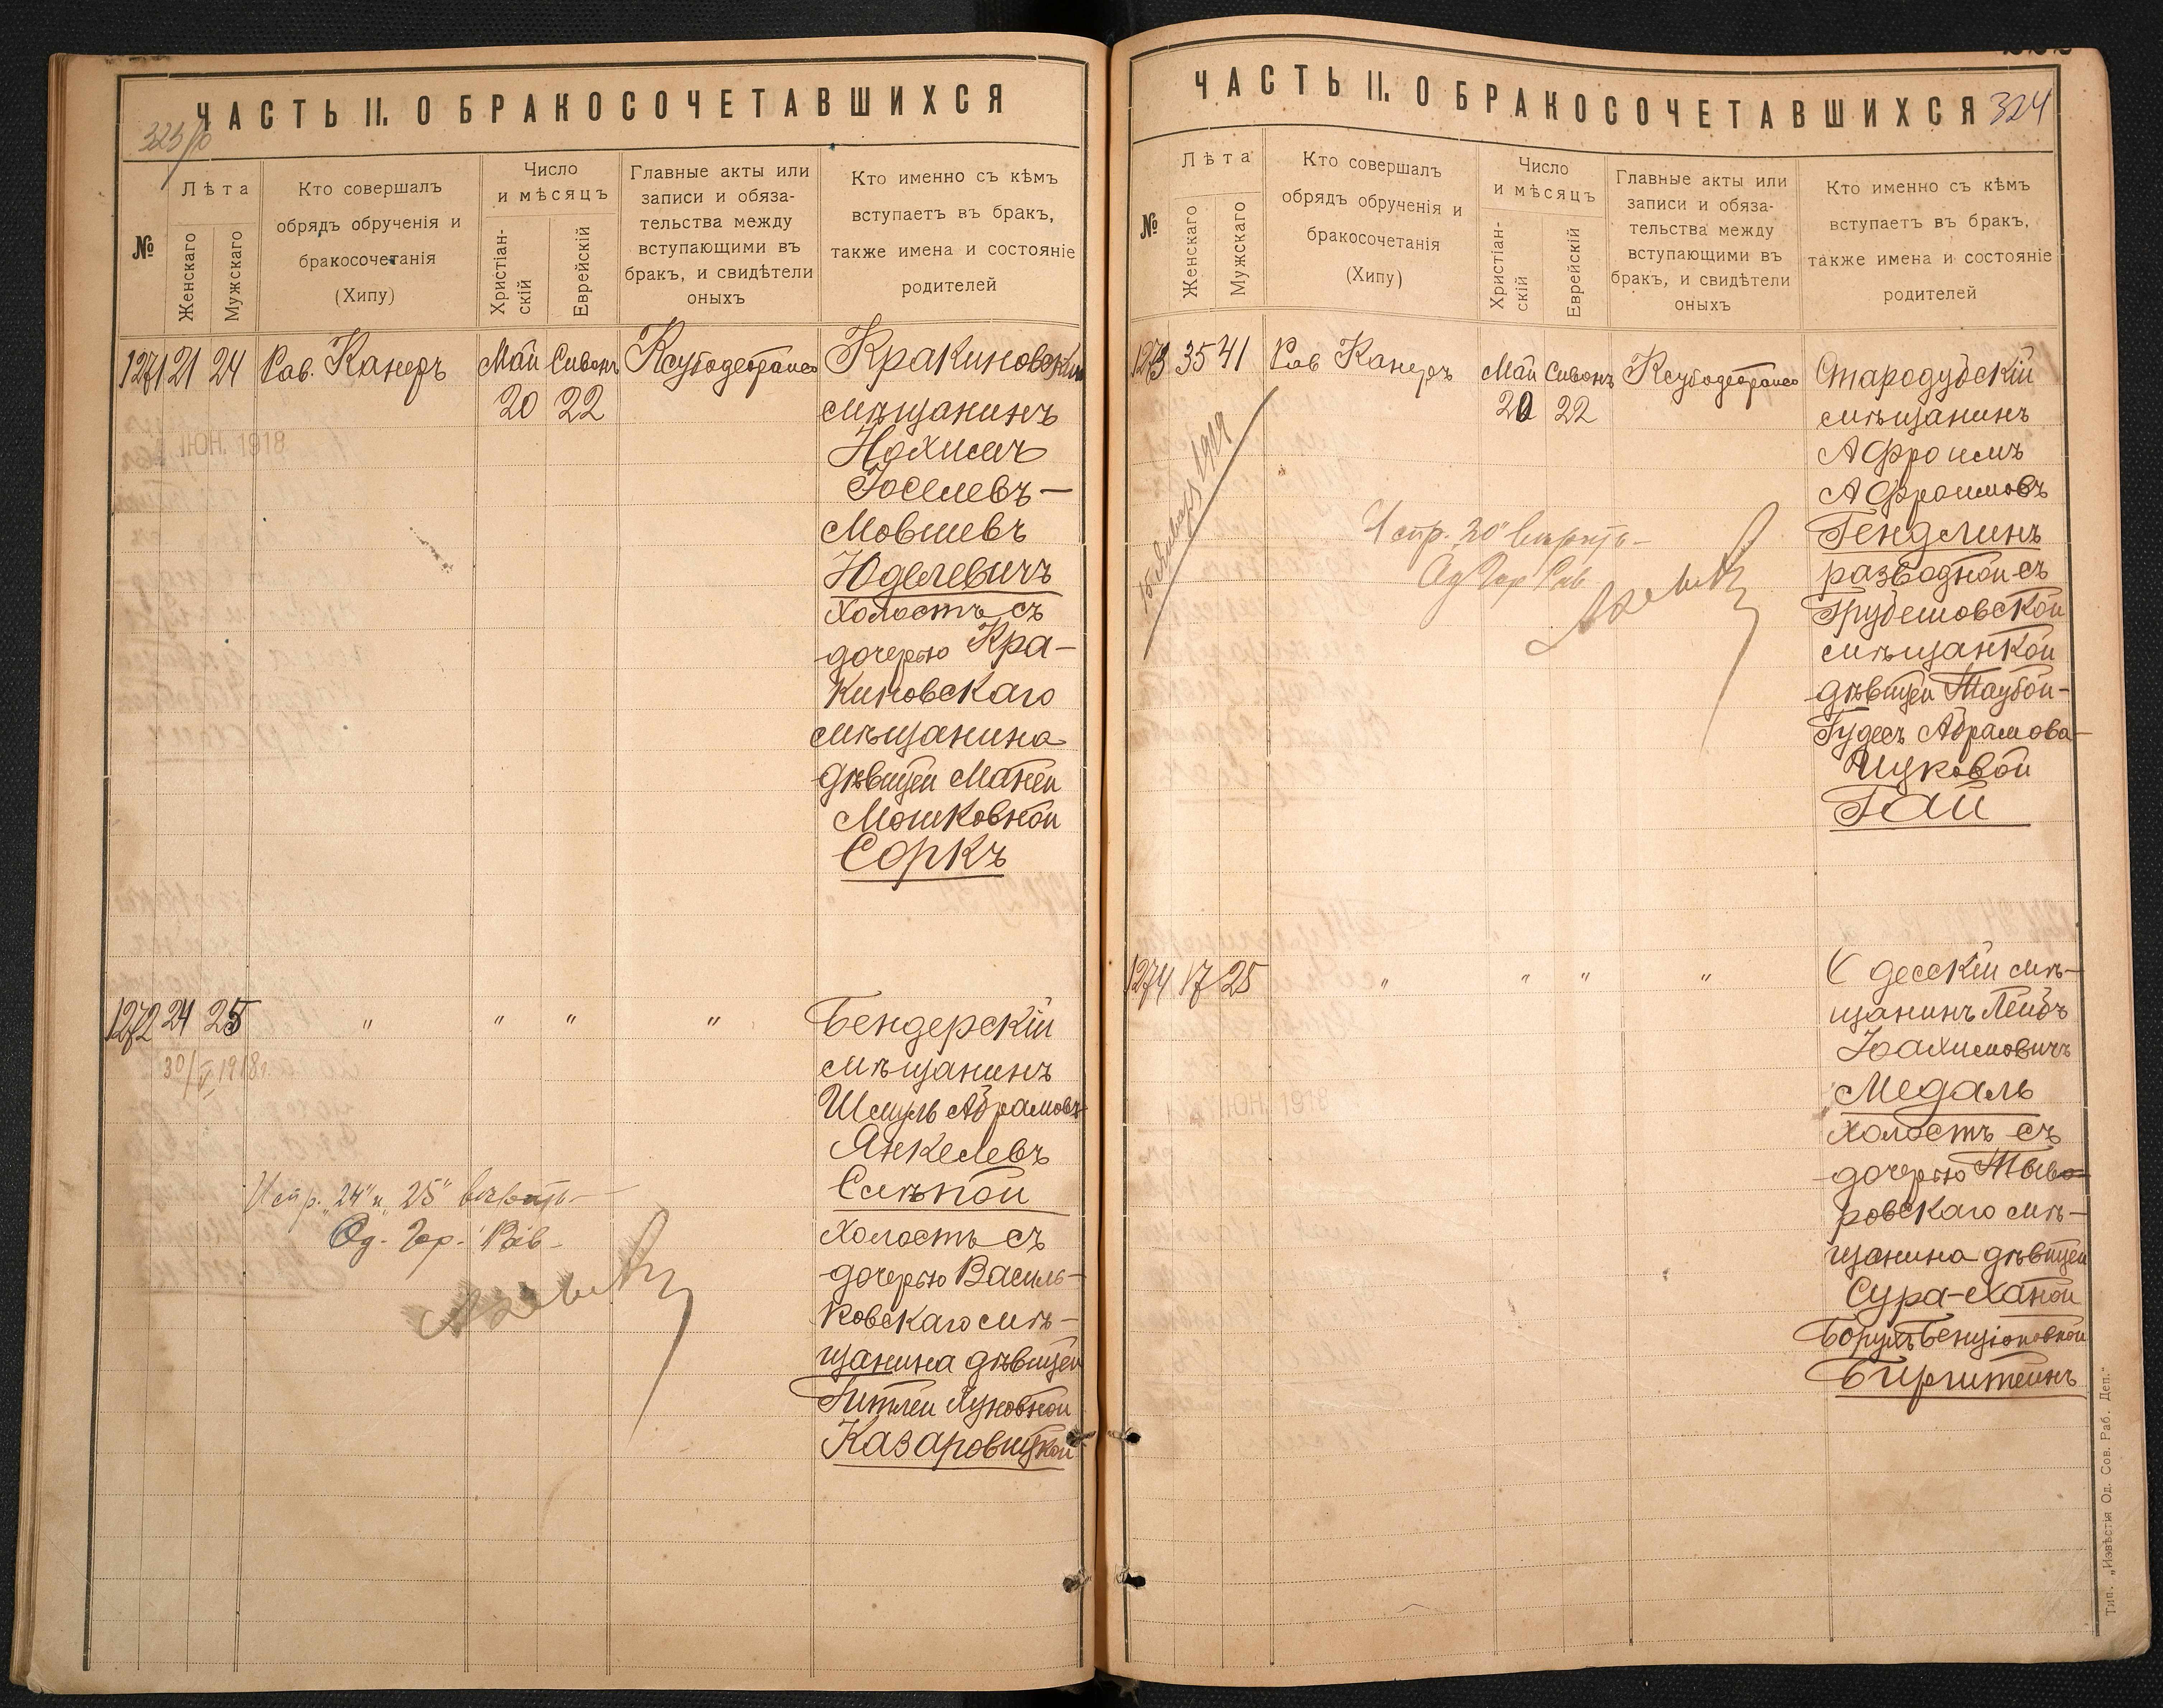 ЧАСТЬ II. О БРАКОСОЧЕТАВШИХСЯ
№
Лѣта
Женскаго
Мужскаго
Кто совершалъ
обрядъ обрученія и
бракосочетанія
(Хипу)
Число
и мѣсяцъ
Христіан-
скій
Еврейскій
Главные акты или
записи и обяза-
тельства между
вступающими въ
бракъ, и свидѣтели
оныхъ
Кто именно съ кѣмъ
вступаетъ въ бракъ,
также имена и состояніе
родителей
1271 21 24 Рав. Канеръ Май Сивонъ
20 22
ІЮН. 1918
Кракиновскій
мѣщанинъ
Нохимъ
Іоселевъ-
Мовшевъ
Юделевичъ
холостъ съ
дочерью Кра-
киновскаго
мѣщанина
дѣвицей Маней
Мошковной
Соркъ
1272 24 25 " " " "
30/V 1918 г.
Бендерскій
мѣщанинъ
Шмуль Абрамовъ
Янкелевъ
Слѣпой
холостъ съ
дочерью Василь-
ковскаго мѣ-
щанина дѣвицей
Гитлей
Казаровицкой
Испр. "24" и "25" вѣрить-
Од. Гор. Рав.
ЧАСТЬ II. О БРАКОСОЧЕТАВШИХСЯ
324
№
Лѣта
Женскаго
Мужскаго
Кто совершалъ
обрядъ обрученія и
бракосочетанія
(Хипу)
Число
и мѣсяцъ
Христіан-
скій
Еврейскій
Главные акты или
записи и обяза-
тельства между
вступающими въ
бракъ, и свидѣтели
оныхъ
Кто именно съ кѣмъ
вступаетъ въ бракъ,
также имена и состояніе
родителей
1273 35 41 Рав Канеръ Май Сивонъ
20 22
Стародубскій
мѣщанинъ
Афроимъ
Афроимовъ
Гендлинъ
разводной съ
Грубешовской
мѣщанкой
дѣвицей Таубой-
Абрамова-
Ицковой
Гай
Испр. "20" вѣрить-
Од Гор Рав
1274 17 25 " " " "
ІЮН. 1918
Одесскій мѣ-
щанинъ Лейбъ
Іоахимовичъ
Медаль
холостъ съ
дочерью Тыв
ровскаго мѣ-
щанина дѣвицей
Сура-Ханой
Борухъ-Бенціоновной
Бирштейнъ
Тип. „Извѣстія Од. Сов. Раб. Деп."